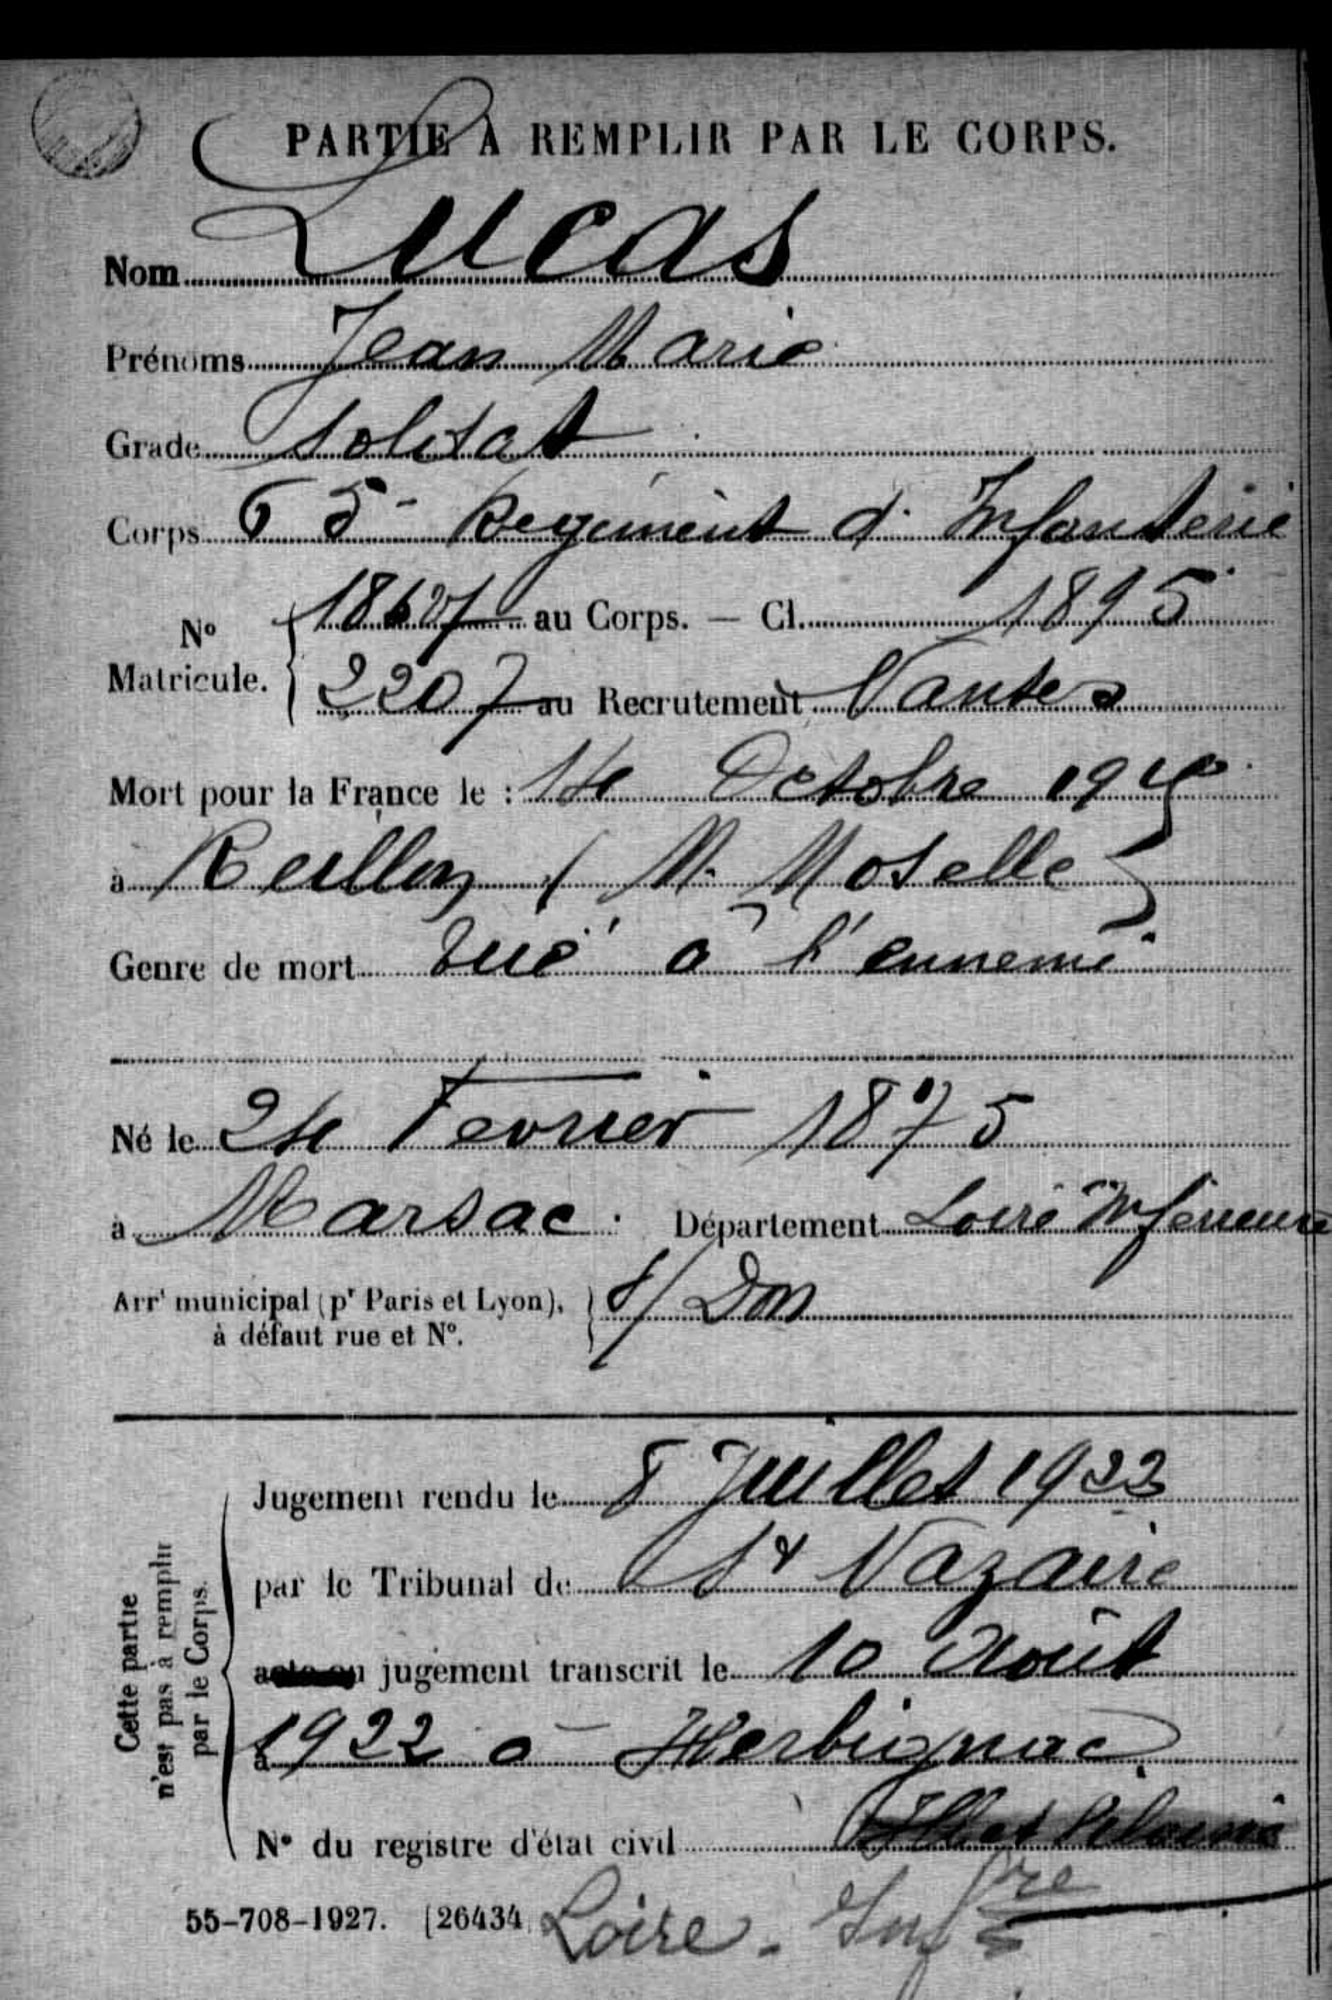 PARTIE À REMPLIR PAR LE CORPS.
Nom Lucas
Prénoms Jean Marie
Grade Soldat
Corps 65e Regiment d'Infanterie
No Matricule. { au Corps. — Cl. 1895
2207 au Recrutement Nantes
Mort pour la France le : 14 Octobre 191
à Reillon ( M. Moselle )
Genre de mort tué à l'ennemi
Né le 24 Fevrier 1875
à Marsac Département Loire Inferieure
Arrt municipal (pr Paris et Lyon), à défaut rue et No. } s/ Don
Cette partie n'est pas à remplir par le Corps.
Jugement rendu le 8 Juillet 1922
par le Tribunal de St Nazaire
jugement transcrit le 10 Août
à 1922 à Herbignac
No du registre d'état civil
55-708-1927. [26434
Loire - Infre